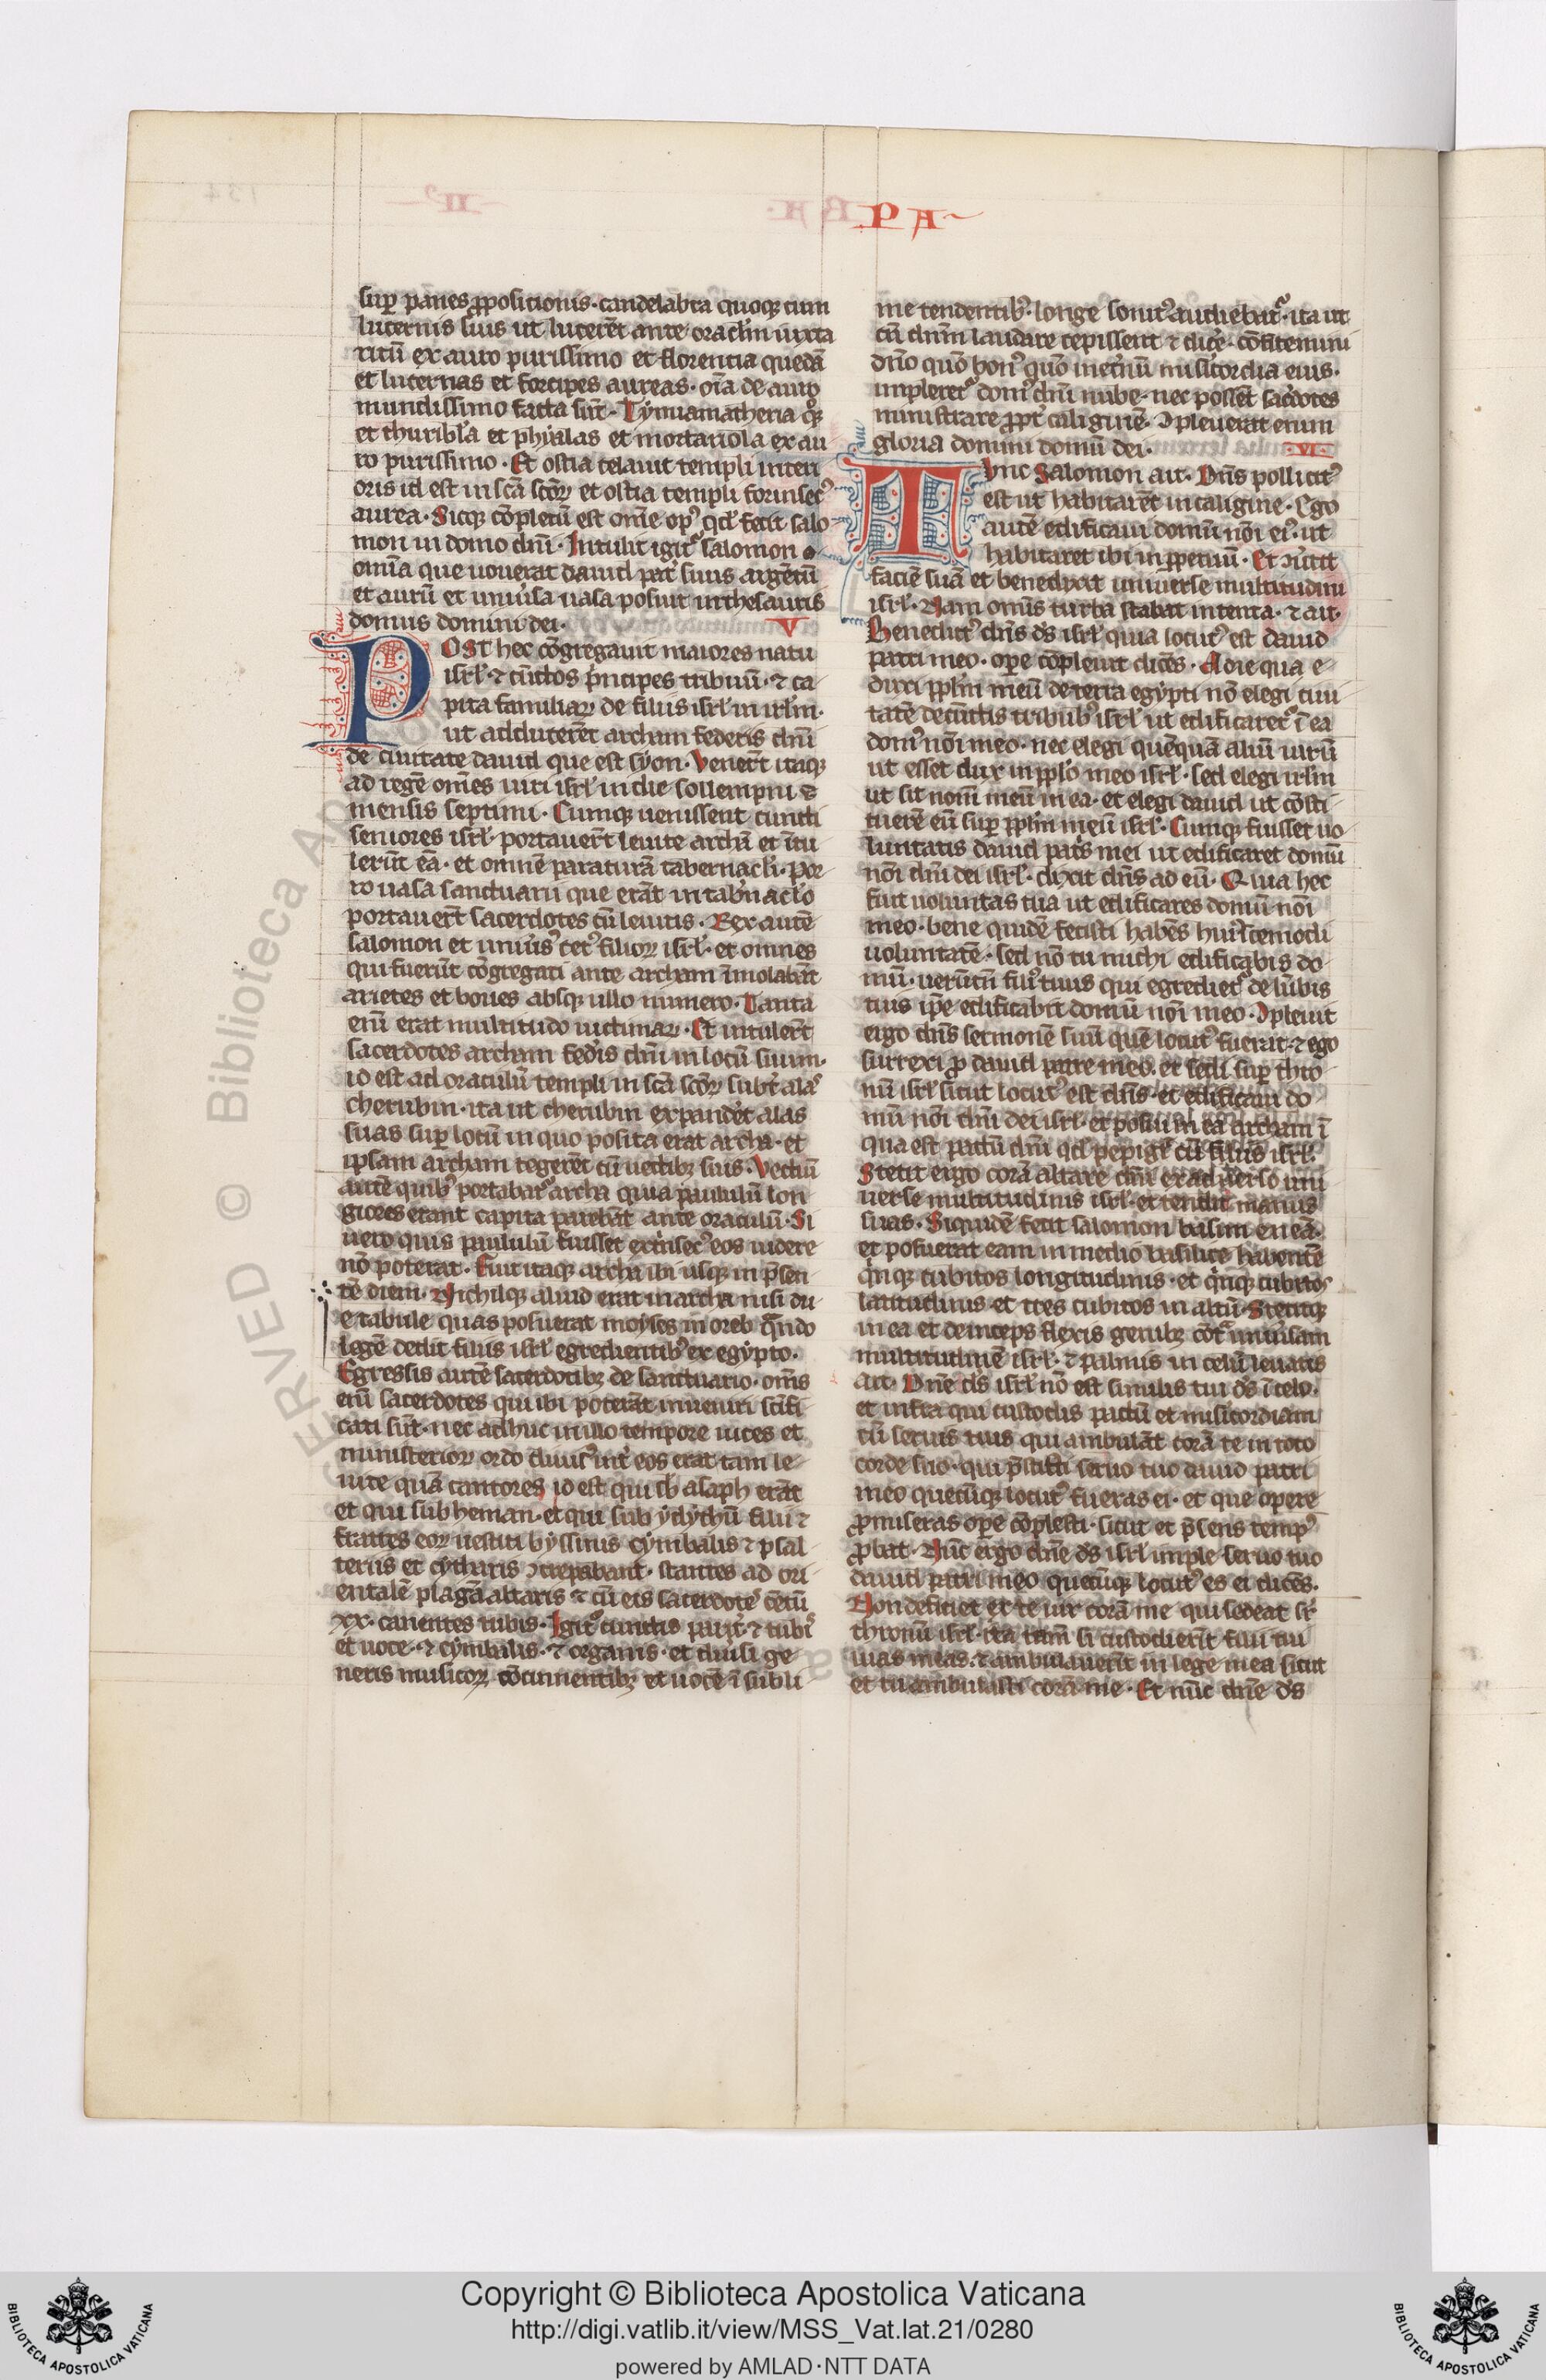 PA
sup̄ panes ꝓpositionis · candelabra quoqꝫ cum
lucernis suis ut lucerēt ante oraclm̄ iuxta
ritū ex auro purissimo et florentia quedā
et lucernas et forcipes aureas · oīa de auro
mundissimo facta sūt · Tymiamatheria qꝫ
et thuribl̓a et phyalas et mortariola ex au
ro purissimo · Et ostia celauit templi interi
oris id est in scā scōꝝ et ostia templi forinsecꝰ
aurea · Sicqꝫ cōpletū est om̄e opꝰ qd̓ fecit salo
mon in domo dn̄i · Intulit igit᷑ salomon
omīa que uouerat dauid pat̓ suus argētū
et aurū et uniūsa uasa posuit in thesauris
domus domini dei · V
POST hec cōgregauit maiores natu
isrl̓ · ⁊ cūctos p̓ncipes tribuū · ⁊ ca
pita familiaꝝ de filiis isrl̓ in irl̓m ·
ut adducerēt archam federis dn̄i
de ciuitate dauid que est syon · Venerūt itaqꝫ
ad regē om̄es uiri isrl̓ in die sollempni
mensis septimi · Cumqꝫ uenissent cuncti
seniores isrl̓ portauerūt leuite archā et ītu
lerūt eā · et omnē paraturā tabernacl̓i · Por
ro uasa sanctuarii que erāt in tab̓nacl̓o
portauerūt sacerdotes cū leuitis · Rex autē
salomon et uniūsꝰ cetꝰ filioꝝ isrl̓ · et omnes
qui fuerūt cōgregati ante archam īmolabāt
arietes et boues absqꝫ ullo numero · Tanta
enī erat multitudo uictimaꝝ · Et intulerūt
sacerdotes archam fed̓is dn̄i in locū suum ·
id est ad oraculū templi in scā scōꝝ subt̓ alas
cherubin · ita ut cherubin expand̓et alas
suas sup̄ locū in quo posita erat archa · et
ipsam archam tegerēt cū uectibꝫ suis · Vectiū
autē quibꝰ portabat᷑ archa quia paululū lon
giores erant capita parebāt ante oraculū · Si
uero quis paululū fuisset ext̓nsecꝰ eos uidere
nō poterat · Fuit itaqꝫ archa ibi usqꝫ in p̄sen
tē diem · Nichilqꝫ aliud erat in archa nisi du
e tabule quas posuerat moyses in oreb q̄ndo
legē dedit filiis isrl̓ egredientibꝰ ex egypto ·
Egressis autē sacerdotibꝫ de sanctuario · om̄s
enī sacerdotes qui ibi poterāt inueniri scīfi
cati sūt · nec adhuc in illo tempore uices et
ministerioꝝ ordo diuisꝰ int̓ eos erat tam le
uite quā cantores id est qui sb̓ asaph erāt
et qui sub heman · et qui sub ydythū filii ⁊
fratres eoꝝ uestiti byssinis cymbalis ⁊ psal
teriis et cytharis ꝯcrepabant · stantes ad ori
entalē plagā altaris ⁊ cū eis sacerdotes cētū
xx · canentes tubis · Igit᷑ cunctis parit̓ ⁊ tubis
et uoce · ⁊ cymbalis · ⁊ organis · et diūsi ge
neris musicoꝝ cōcinnentibꝫ et uocē ī subli
me tendentibꝰ · longe sonitꝰ audiebat᷑ · ita ut
cū dn̄m laudare cepissent ⁊ dic̓e · cōfitemini
dn̄o quō bonꝰ quō inet̓nū mis̓icordia eius ·
impleret᷑ domꝰ dn̄i nube · nec possēt sac̓dotes
ministrare ꝓpt̓ caliginē · ꝯpleuerat enim
gloria domini domū dei · VI ·
TVnc Salomon ait · Dn̄s pollicitꝰ
est ut habitarēt in caligine · Ego
autē edificaui domū nōi eiꝰ · ut
habitaret ibi in ꝑpetuū · Et ꝯu̓tit
faciē suā et benedixit uniuerse multitudini
isrl̓ · Nam omīs turba stabat intenta · ⁊ ait ·
Benedictꝰ dn̄s ds̄ isrl̓ quia locutꝰ est dauid
patri meo · oꝑe cōpleuit dicēs · A die qua e
duxi ppl̓m meū de terra egypti nō elegi ciui
tatē de cūctis tribubꝰ isrl̓ ut edificaret᷑ ī ea
domꝰ nōi meo · nec elegi quēquā aliū uirū
ut esset dux in ppl̓o meo isrl̓ · sed elegi irl̓m
ut sit nom̄ meū in ea · et elegi dauid ut cōsti
tuerē eū sup̄ ppl̓m meū isrl̓ · Cumqꝫ fuisset uo
luntatis dauid pat̓s mei ut edificaret domū
nōi dn̄i dei isrl̓ · dixit dn̄s ad eū · Quia hec
fuit uoluntas tua ut edificares domū nōi
meo · bene quidē fecisti habēs hui̓cemodi
uoluntatē · sed nō tu michi edificabis do
mū · uerūtn̄ filiꝰ tuus qui egrediet᷑ de lūbis
tuis ip̄e edificabit domū nōi meo · ꝯpleuit
ergo dn̄s sermonē suū quē locutꝰ fuerat · ⁊ ego
surrexi ꝓ dauid patre meo · et sedi sup̄ thro
nū isrl̓ sicut locutꝰ est dn̄s · et edificaui do
mū nōi dn̄i dei isrl̓ · et posui in ea archam ī
qua est pactū dn̄i qd̓ pepigit cū filiis isrl̓ ·
Stetit ergo corā altare dn̄i ex aduerso uni
uerse multitudinis isrl̓ · et tendit manus
suas · Siquidē fecit salomon basim eneā ·
et posuerat eam in medio basilice habentē
q̓nqꝫ cubitos longitudinis · et q̓nqꝫ cubitos
latitudinis · et tres cubitos in altū · Stetitqꝫ
in ea et deinceps flexis genibꝫ cōt̓ uniūsam
multitudinē isrl̓ · ⁊ palmis in celū leuatis
ait · Dn̄e ds̄ isrl̓ nō est similis tui ds̄ ī celo ·
et in terra qui custodis pactū et mis̓icordiam
cū seruis tuis qui ambulāt corā te in toto
corde suo · qui p̄stitisti seruo tuo dauid patri
meo quecūqꝫ locutꝰ fueras ei · et que opere
ꝓmiseras oꝑe cōplesti · sicut et p̄sens tempꝰ
ꝓbat · Nūc ergo dn̄e ds̄ isrl̓ imple seruo tuo
dauid patri meo quecūqꝫ locutꝰ es ei dicēs ·
Non deficiet ex te uir corā me qui sedeat sr̓
thronū isrl̓ · ita tam̄ si custodierīt filii tui
uias meas · ⁊ ambulauerīt in lege mea sicut
et tu ambulasti corā me · Et nūc dn̄e ds̄
© Biblioteca Ap
ERVED
Copyright © Biblioteca Apostolica Vaticana
http://digi.vatlib.it/view/MSS_Vat.lat.21/0280
powered by AMLAD·NTT DATA
BIBLIOTECA APOSTOLICA VATICANA
BIBLIOTECA APOSTOLICA VATICANA